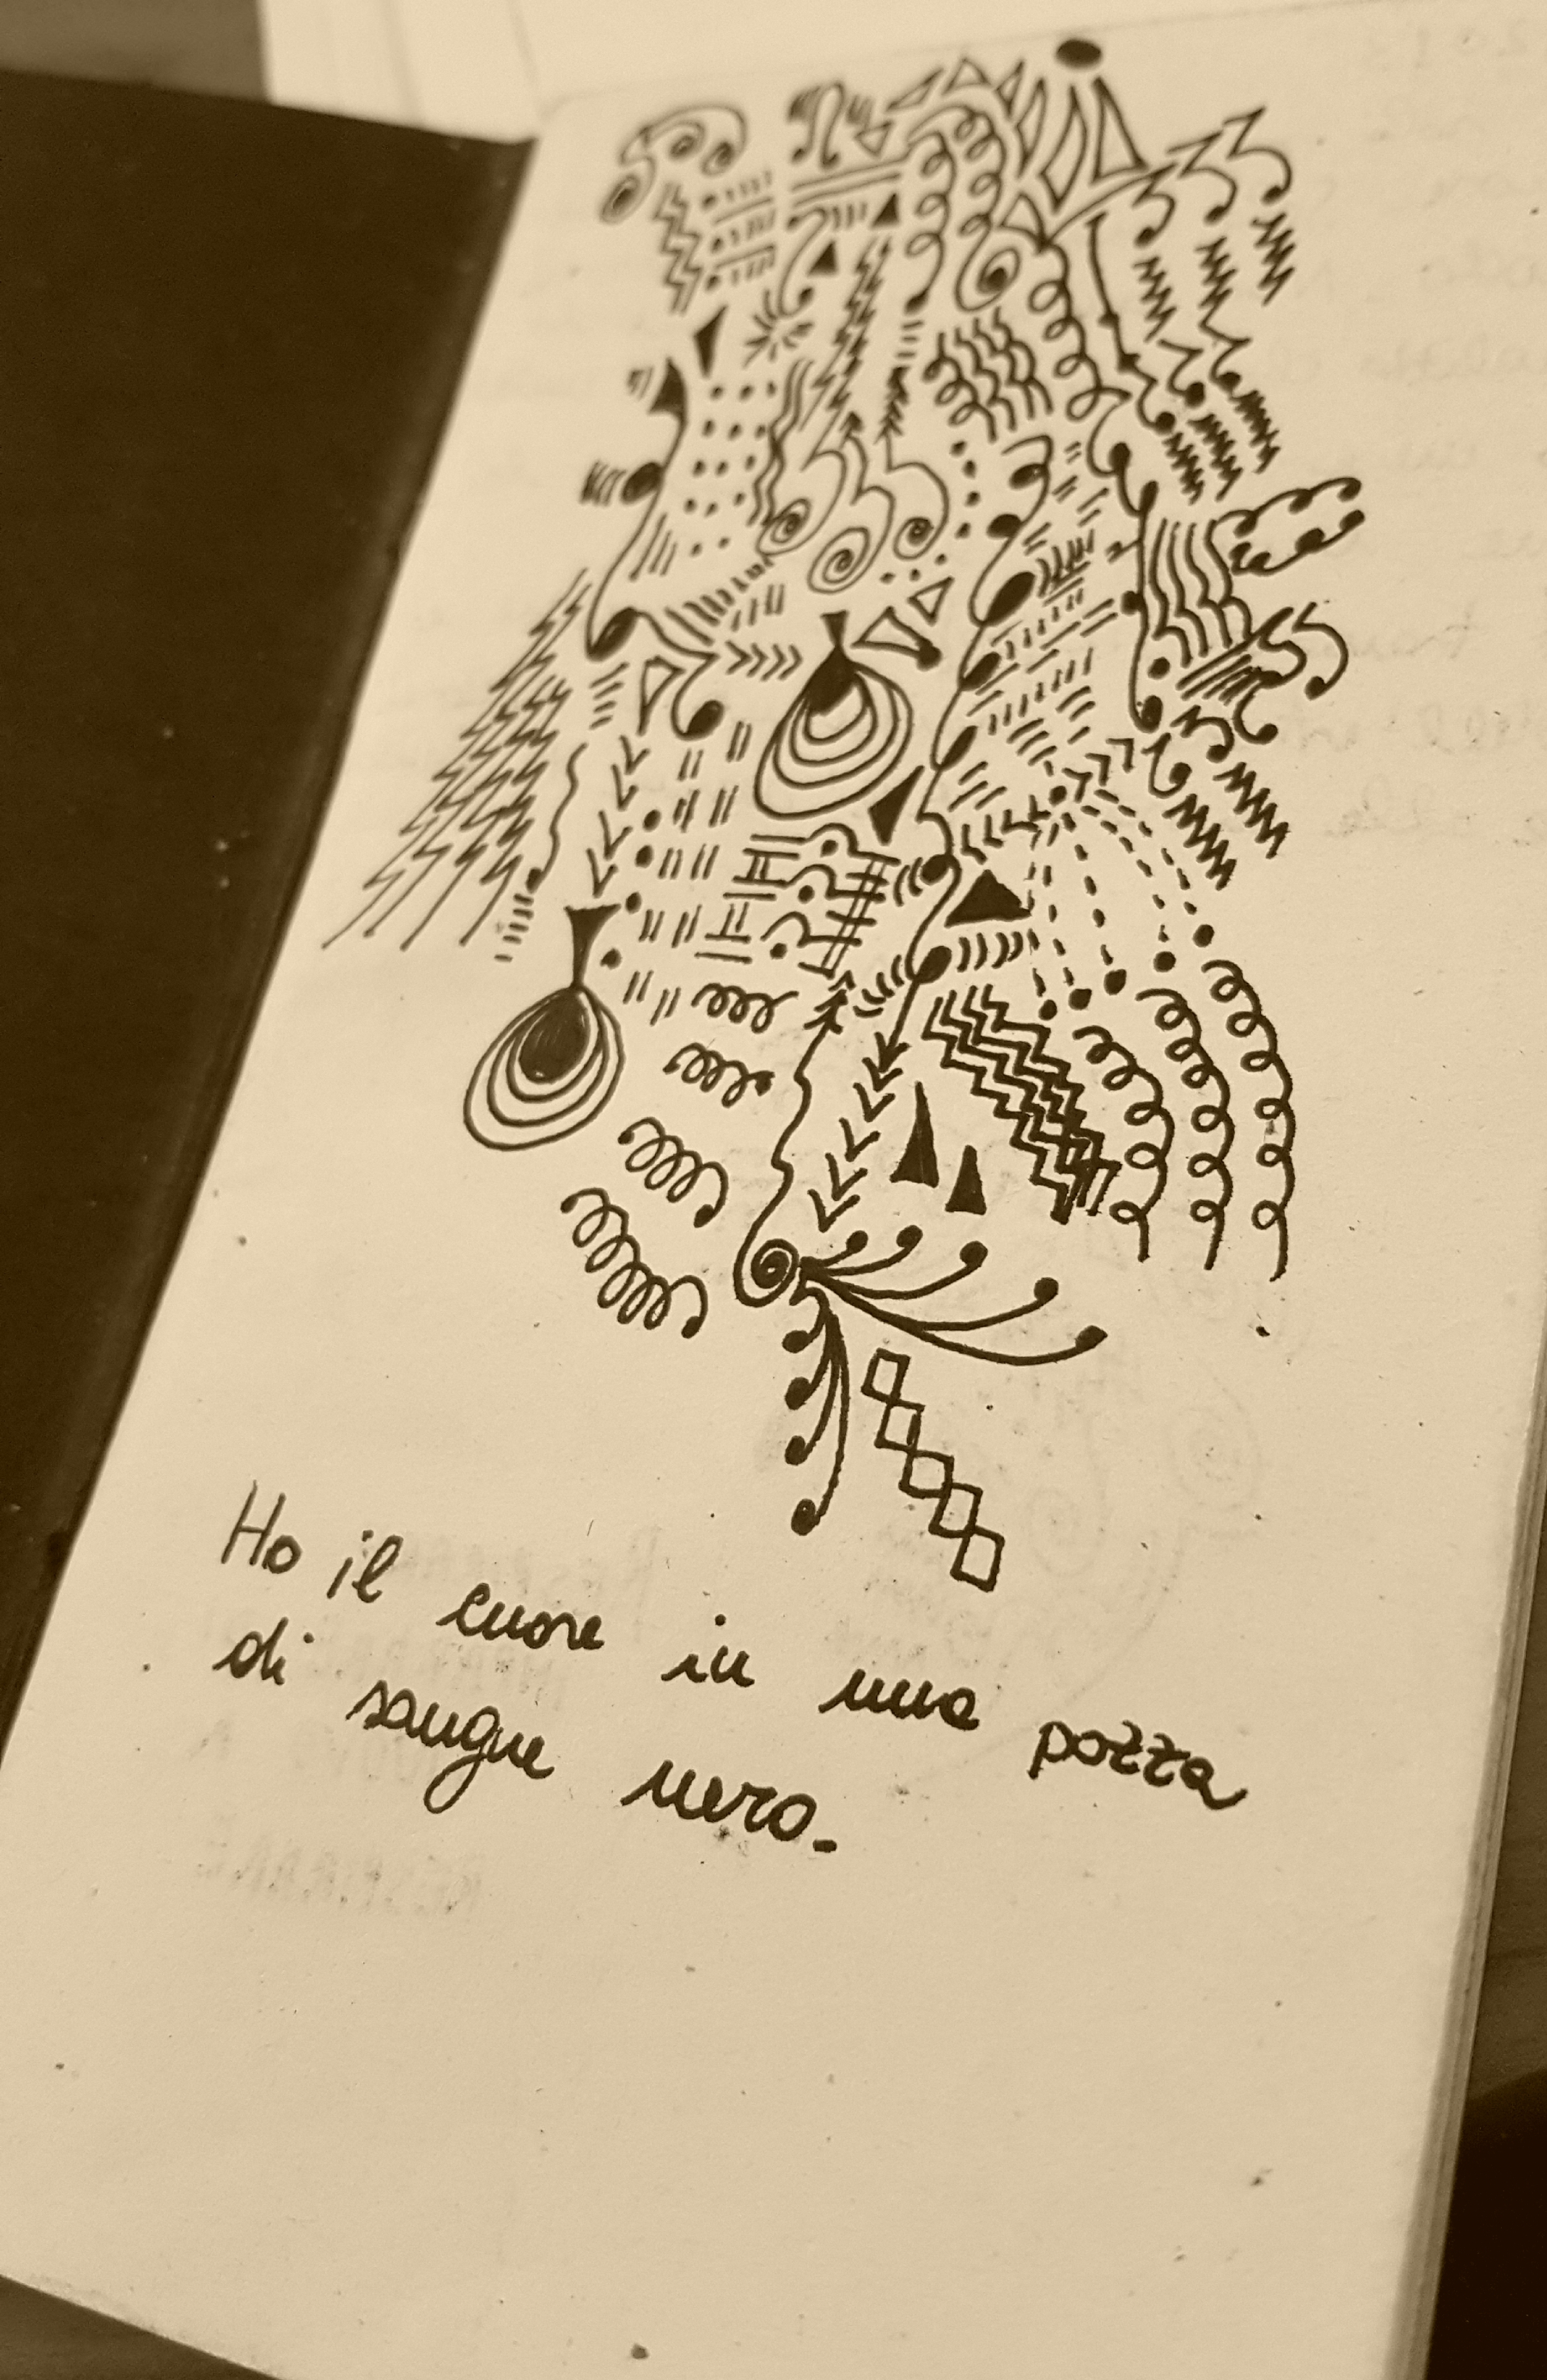 Ho il cuore in una pozza
di sangue nero.